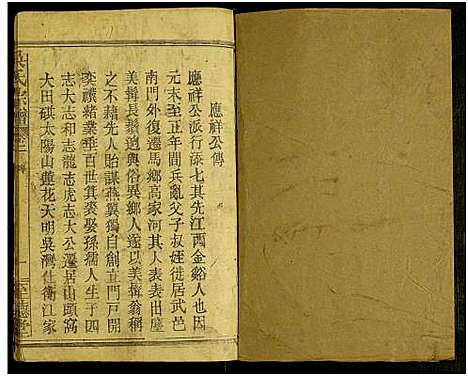 應祥公傳
應祥公派行添七其先江西金谿人也因
元末至正年間兵亂父子叔姪徙居武邑
南門外復遷馬鄉高家河其人表表出塵
美髯長鬚逈與俗異鄉人遂以美髯翁稱
之不隸先人貽謀燕翼獨自創立門戸開
奕禩緒業垂百世箕裘娶孫孺人生子四
志大志和志龍志虎志大公遷居山頭窩
大田磏太陽山蓮花天明吳灣仕衡江家
吳氏宗譜